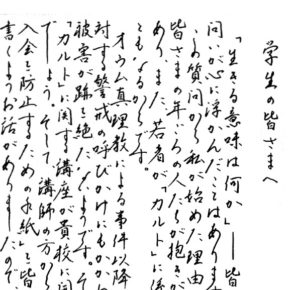 学生の皆さまへ
「生きる意味は何か」――皆
問いが心に浮かんだことはありま
この質問から私が始めた理由
皆さまの年ごろの人たちが抱きが
あり、また、若者が「カルト」に係
ともなるからです。
オウム真理教による事件以降
対する警戒の呼びかけにもかかわ
被害が跡を絶たないようです。そ
「カルト」に関する講座が貴校に開
でしょう。そして、講師の方から
入会を防止するための手紙」を皆
書くようお話がありましたので、